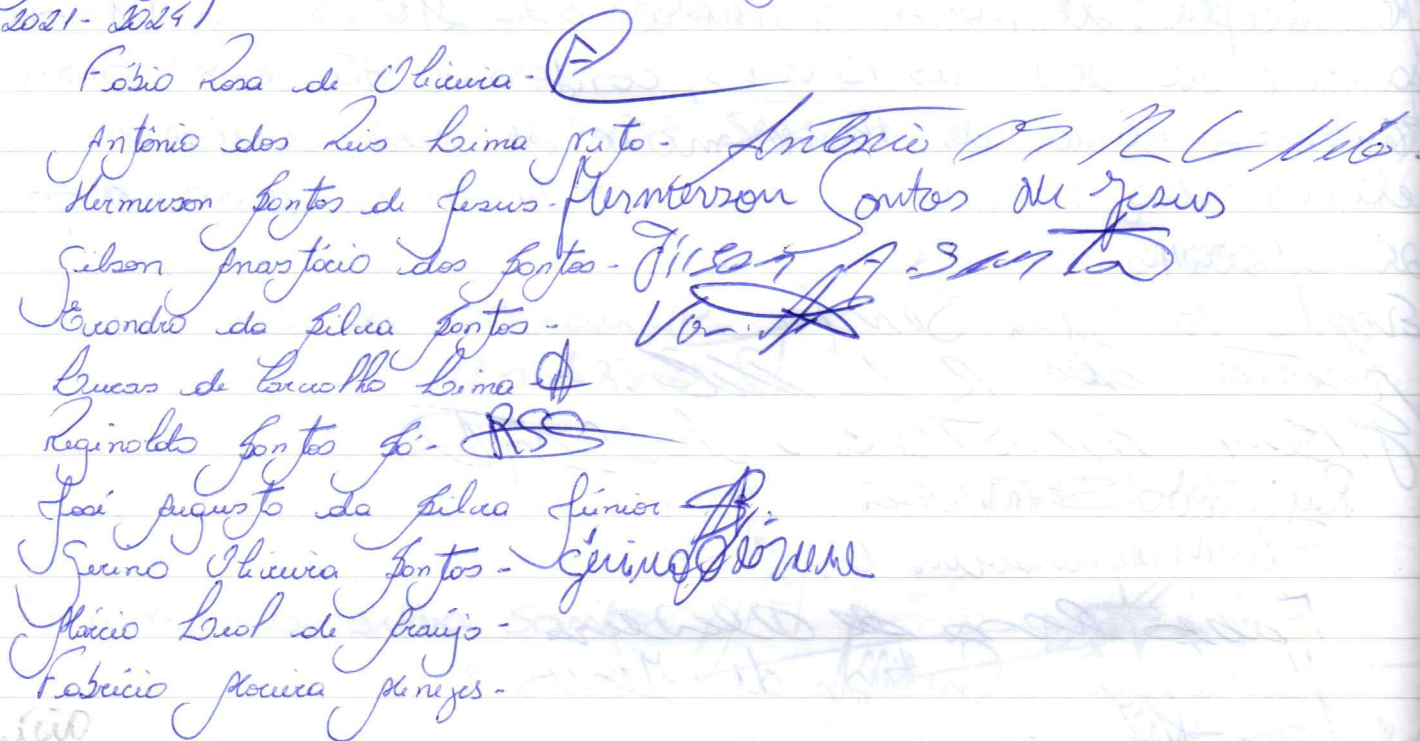 2021-2024)
Fábio Rosa de Oliveira -
Antônio dos Reis Lima Neto - Antônio Neto
Hermerson Santos de Jesus - Hermerson Santos de Jesus
Gilson Anastácio dos Santos - Gilson A. Santos
Evandro da Silva Santos -
Lucas de Carvalho Lima
Reginaldo Santos Só - RSS
José Augusto da Silva Júnior
Gerino Oliveira Santos -
Márcio Leal de Araújo -
Fabrício Moreira Menezes -